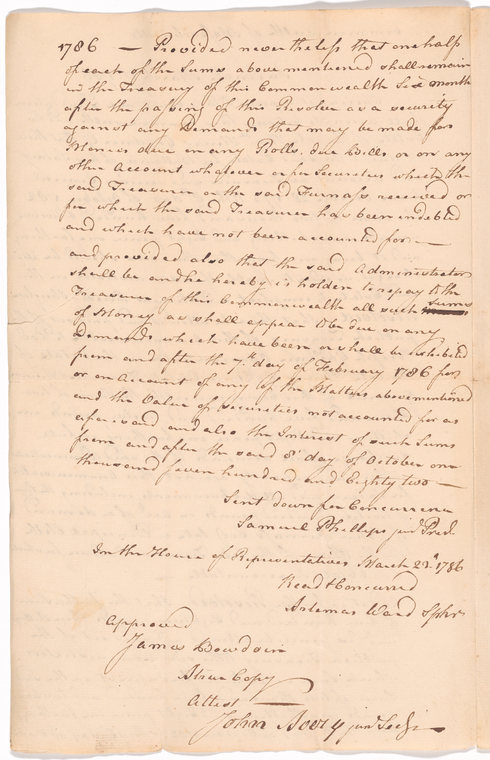 1786 — Provided nevertheless that one half
of each of the Sums above mentioned shall remain
in the Treasury of this Commonwealth Six month
after the passing of this Resolve as a security
against any Demands that may be made for
Monies due on any Rolls, due Bills or on any
other Account whatever or for Securities which the
said Treasurer or the said Furnass received or
for which the said Treasurer has been indebted
and which have not been accounted for —
and provided also that the said Administrator
shall be and he hereby is holden to repay to the
Treasurer of this Commonwealth all such Sums
of Money as shall appear to be due on any
Demands which have been or shall be exhibited
from and after the 7th day of February 1786 for
or on Account of any of the Matters abovementioned
and the Value of securities not accounted for as
aforesaid and also the Interest of such Sums
from and after the said 8 day of October one
thousand seven hundred and Eighty two —
Sent down for Concurrence
Samuel Phillips junr Presd.
In the House of Representatives March 23d 1786
Read & Concurred
Artemas Ward Spkr
Approved
James Bowdoin
A true Copy
Attest
John Avery junr Secy